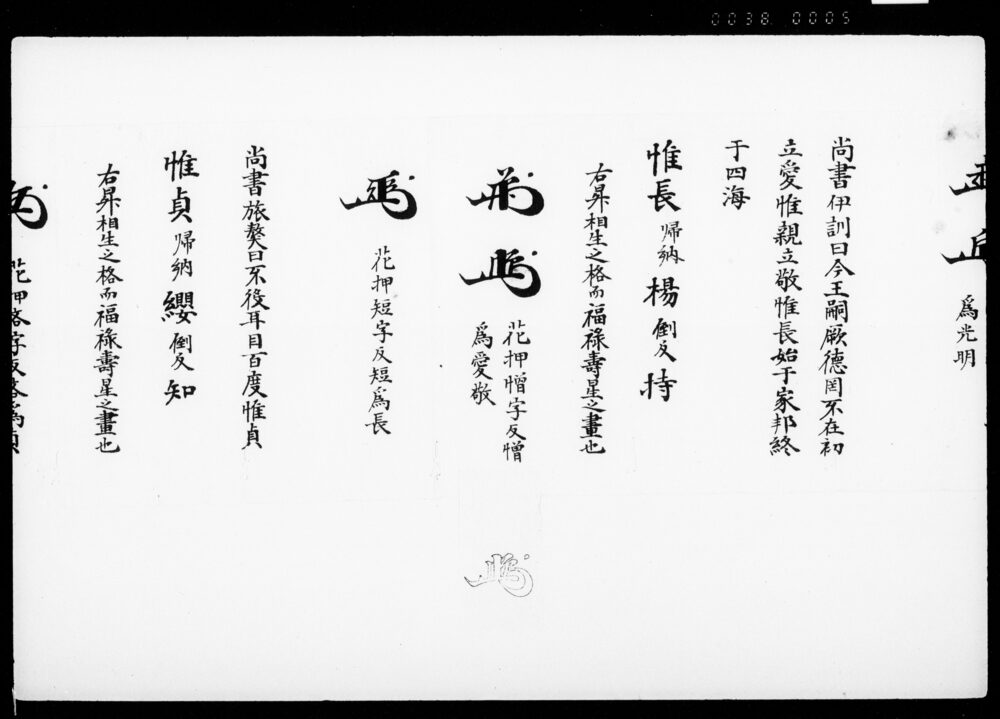 0038 0005
爲光明
尚書伊訓曰今王嗣厥德罔不在初
立愛惟親立敬惟長始于家邦終
于四海
惟長 歸納 楊 倒反 持
右昇相生之格而福祿壽星之畫也
花押憎字反憎
爲愛敬
花押短字反短爲長
尚書旅獒曰不役耳目百度惟貞
惟貞 歸納 纓 倒反 知
右昇相生之格而福祿壽星之畫也